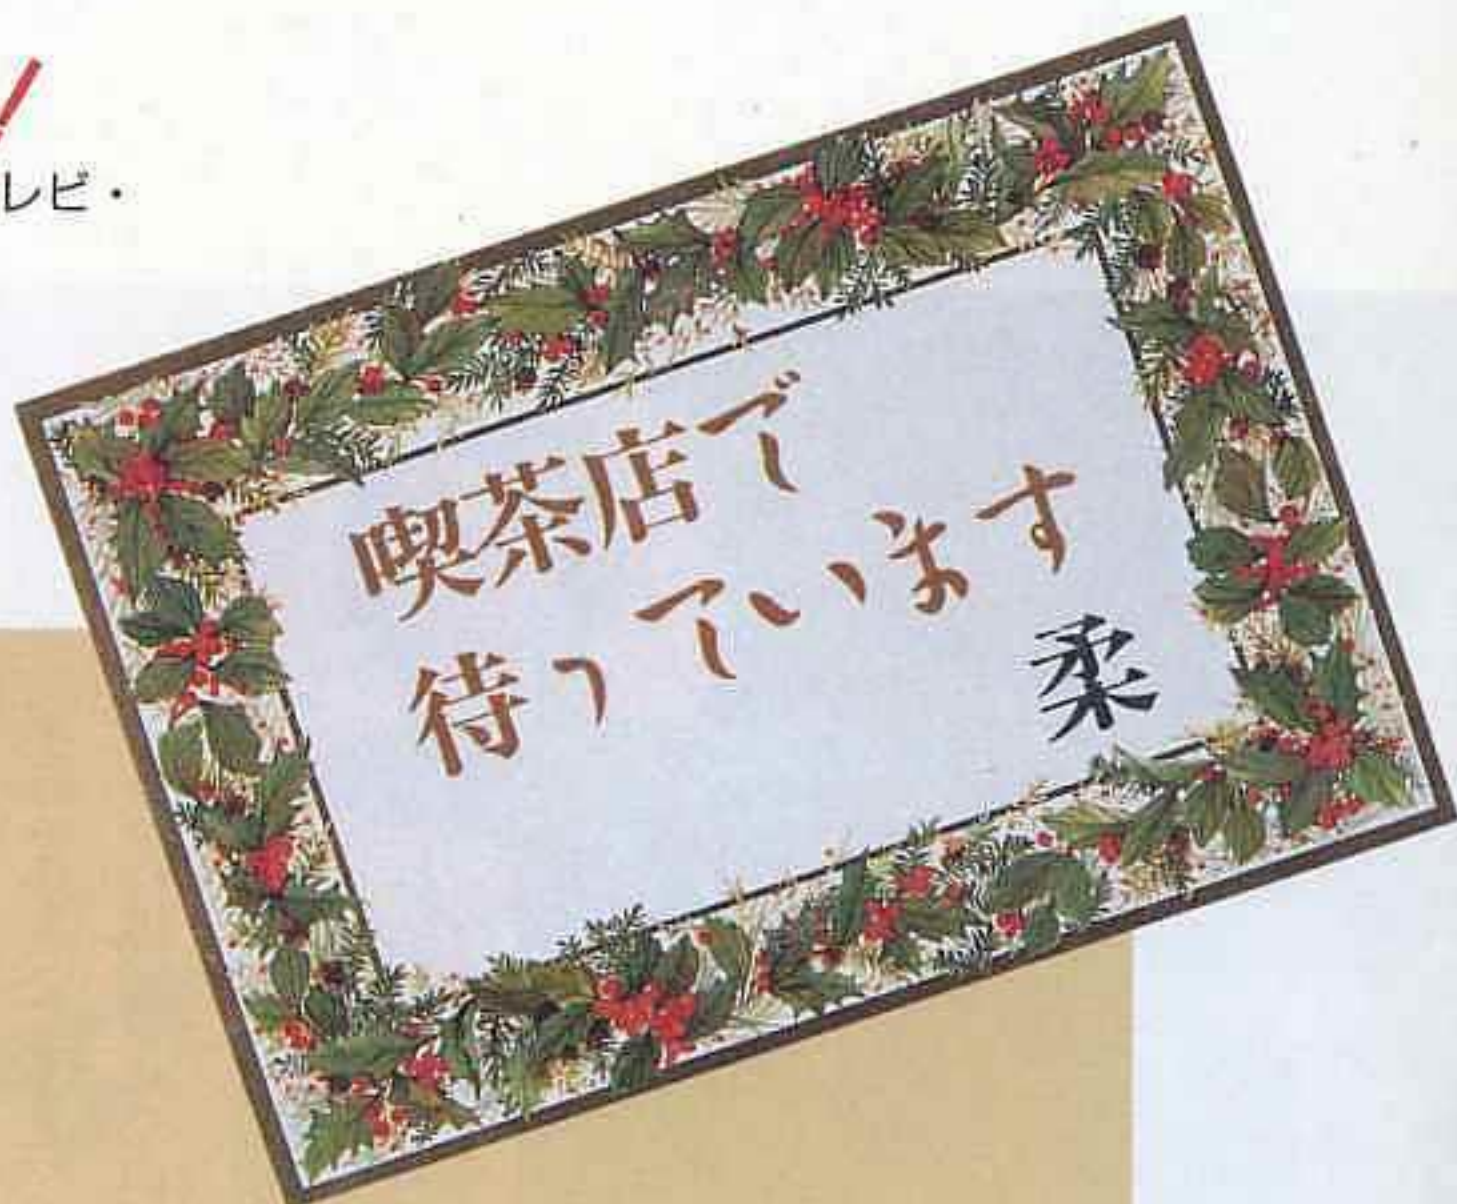 レビ・
喫茶店で
待っています
柔